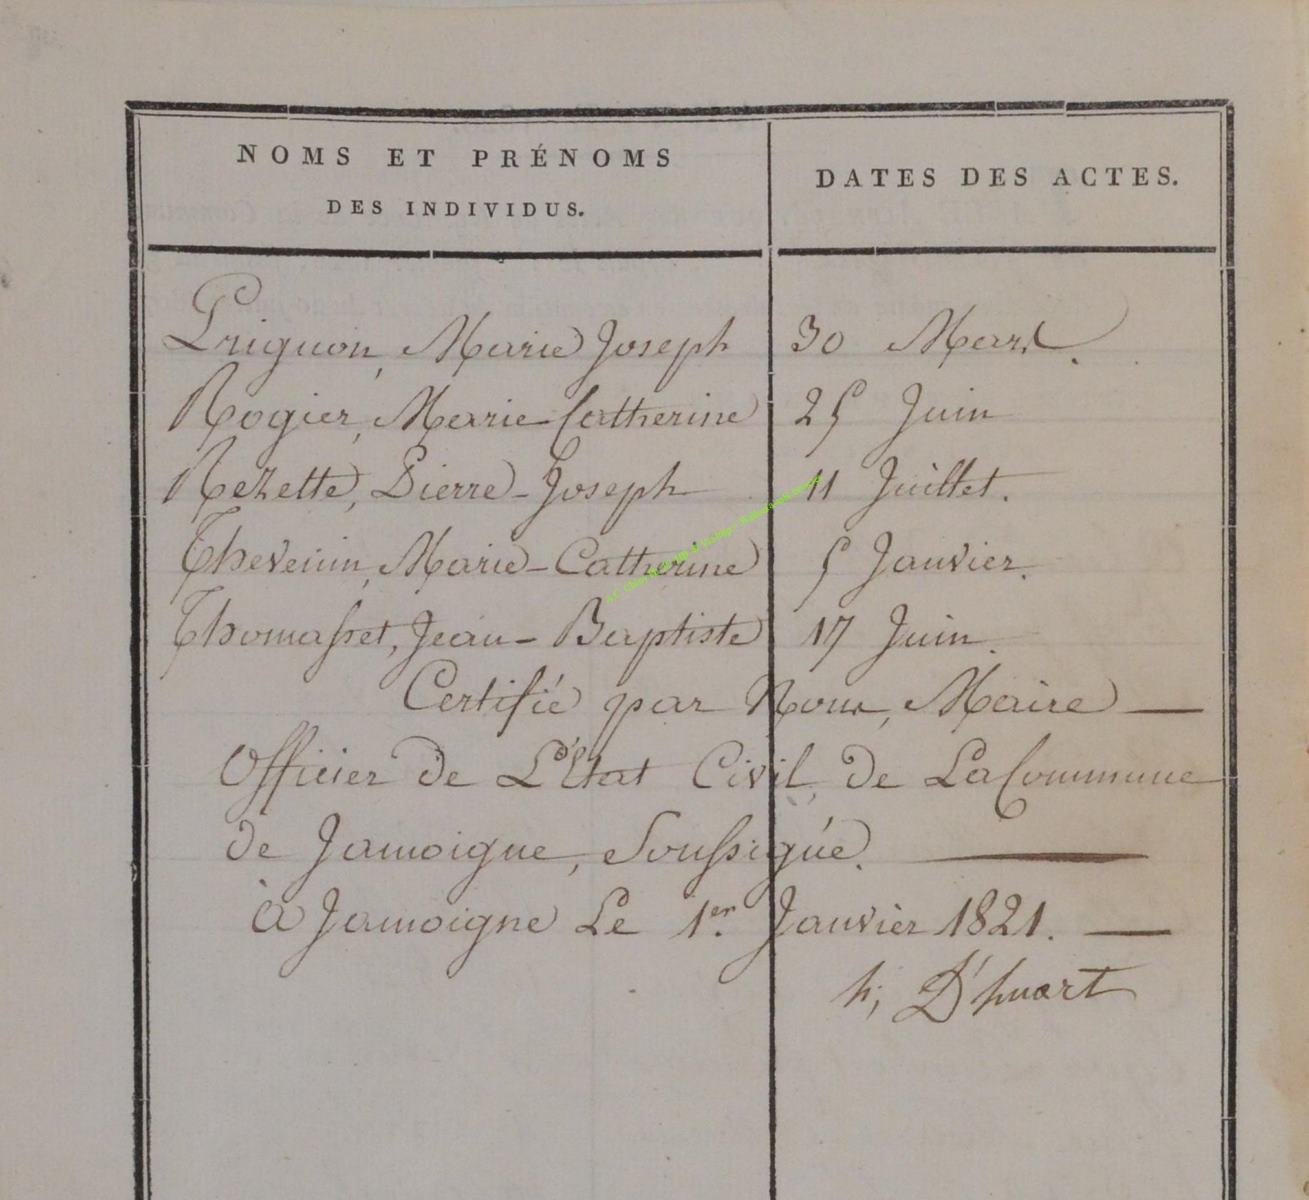 NOMS ET PRÉNOMS
DES INDIVIDUS.
DATES DES ACTES.
Prignon, Marie Joseph 30 Mars.
Rogier, Marie-Catherine 25 Juin
Rezette, Pierre-Joseph 11 Juillet.
Thevenin, Marie-Catherine 5 Janvier.
Thomasset, Jean-Baptiste 17 Juin.
Certifié par Nous, Maire —
Officier de L'Etat Civil, de La Commune
de Jamoigne, Soussigné. —
à Jamoigne Le 1er. Janvier 1821. —
h; D'huart